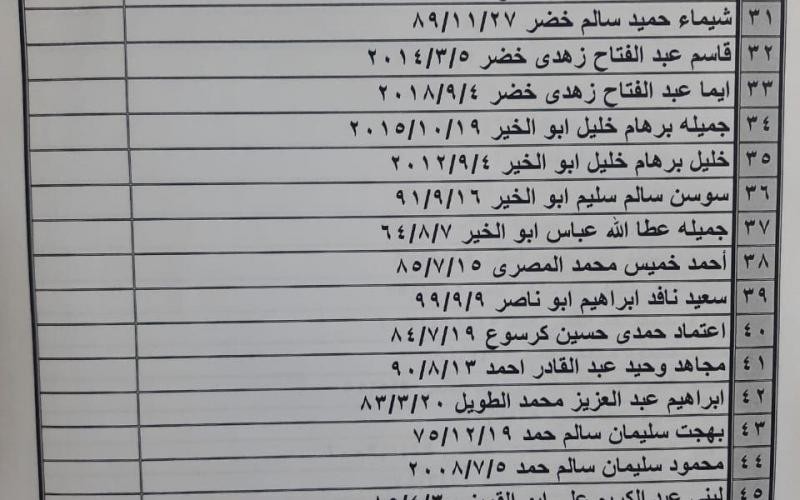 ٣١ شيماء حميد سالم خضر ٨٩/١١/٢٧
٣٢ قاسم عبد الفتاح زهدى خضر ٢٠١٤/٣/٥
٣٣ ايما عبد الفتاح زهدى خضر ٢٠١٨/٩/٤
٣٤ جميله برهام خليل ابو الخير ٢٠١٥/١٠/١٩
٣٥ خليل برهام خليل ابو الخير ٢٠١٢/٩/٤
٣٦ سوسن سالم سليم ابو الخير ٩١/٩/١٦
٣٧ جميله عطا الله عباس ابو الخير ٦٤/٨/٧
٣٨ أحمد خميس محمد المصرى ٨٥/٧/١٥
٣٩ سعيد نافد ابراهيم ابو ناصر ٩٩/٩/٩
٤٠ اعتماد حمدى حسين كرسوع ٨٤/٧/١٩
٤١ مجاهد وحيد عبد القادر احمد ٩٠/٨/١٣
٤٢ ابراهيم عبد العزيز محمد الطويل ٨٣/٣/٢٠
٤٣ بهجت سليمان سالم حمد ٧٥/١٢/١٩
٤٤ محمود سليمان سالم حمد ٢٠٠٨/٧/٥
٤٥ لبنى عبد الكريم على ابو